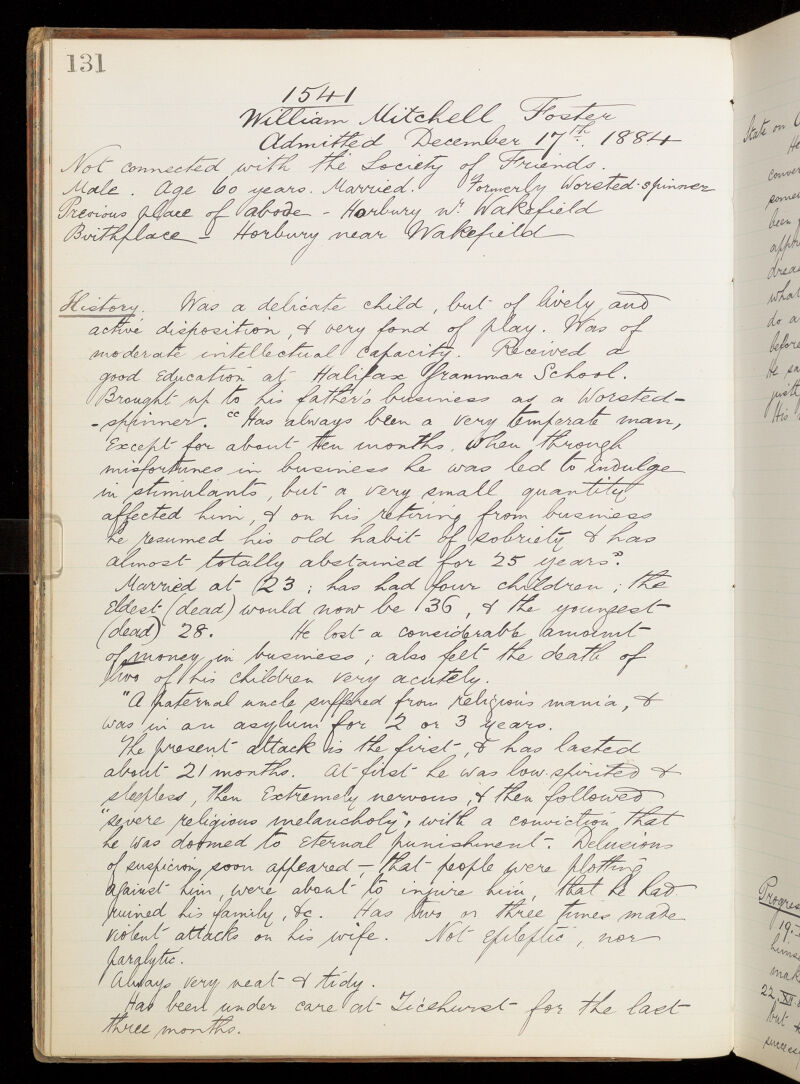 131
1541
William Mitchell Foster
Admitted December 17th. 1884
Not connected with the Society of Friends.
Male. Age 60 years. Married. Formerly Worsted-spinner
Previous place of abode - Horbury nr. Wakefield
Birthplace - Horbury near Wakefield
History. Was a delicate child, but of lively and
active disposition, & very fond of play. Was of
moderate intellectual capacity. Received a
good education at Halifax Grammar School.
Brought up to his father's business as a Worsted-
-spinner. "Has always been a very temperate man,
except for about ten months, when through
misfortunes in business he was led to indulge
in stimulants, but a very small quantity
affected him, & on his retiring from business
he resumed his old habit of sobriety & has
almost totally abstained for 25 years".
Married at 23; has had four children; the
eldest (dead) would now be 36, & the youngest
(dead) 28. He lost a considerable amount
of money in business; also felt the death of
two of his children very acutely.
"A paternal uncle suffered from religious mania, &
was in an asylum for 2 or 3 years.
The present attack is the first, & has lasted
about 21 months. At first he was low-spirited &
sleepless, then extremely nervous, & then followed
"severe religious melancholy", with a conviction that
he was doomed to eternal punishment. Delusions
of suspicion soon appeared - that people were plotting
against him, were about to injure him, that he had
ruined his family, &c. Has two or three times made
violent attacks on his wife. Not epileptic, nor
paralytic.
Always very neat & tidy.
Has been under care at Ticehurst for the last
three months.
State on
He
been
what
do a
before
He
His
Progress
19.
22.XII.
but